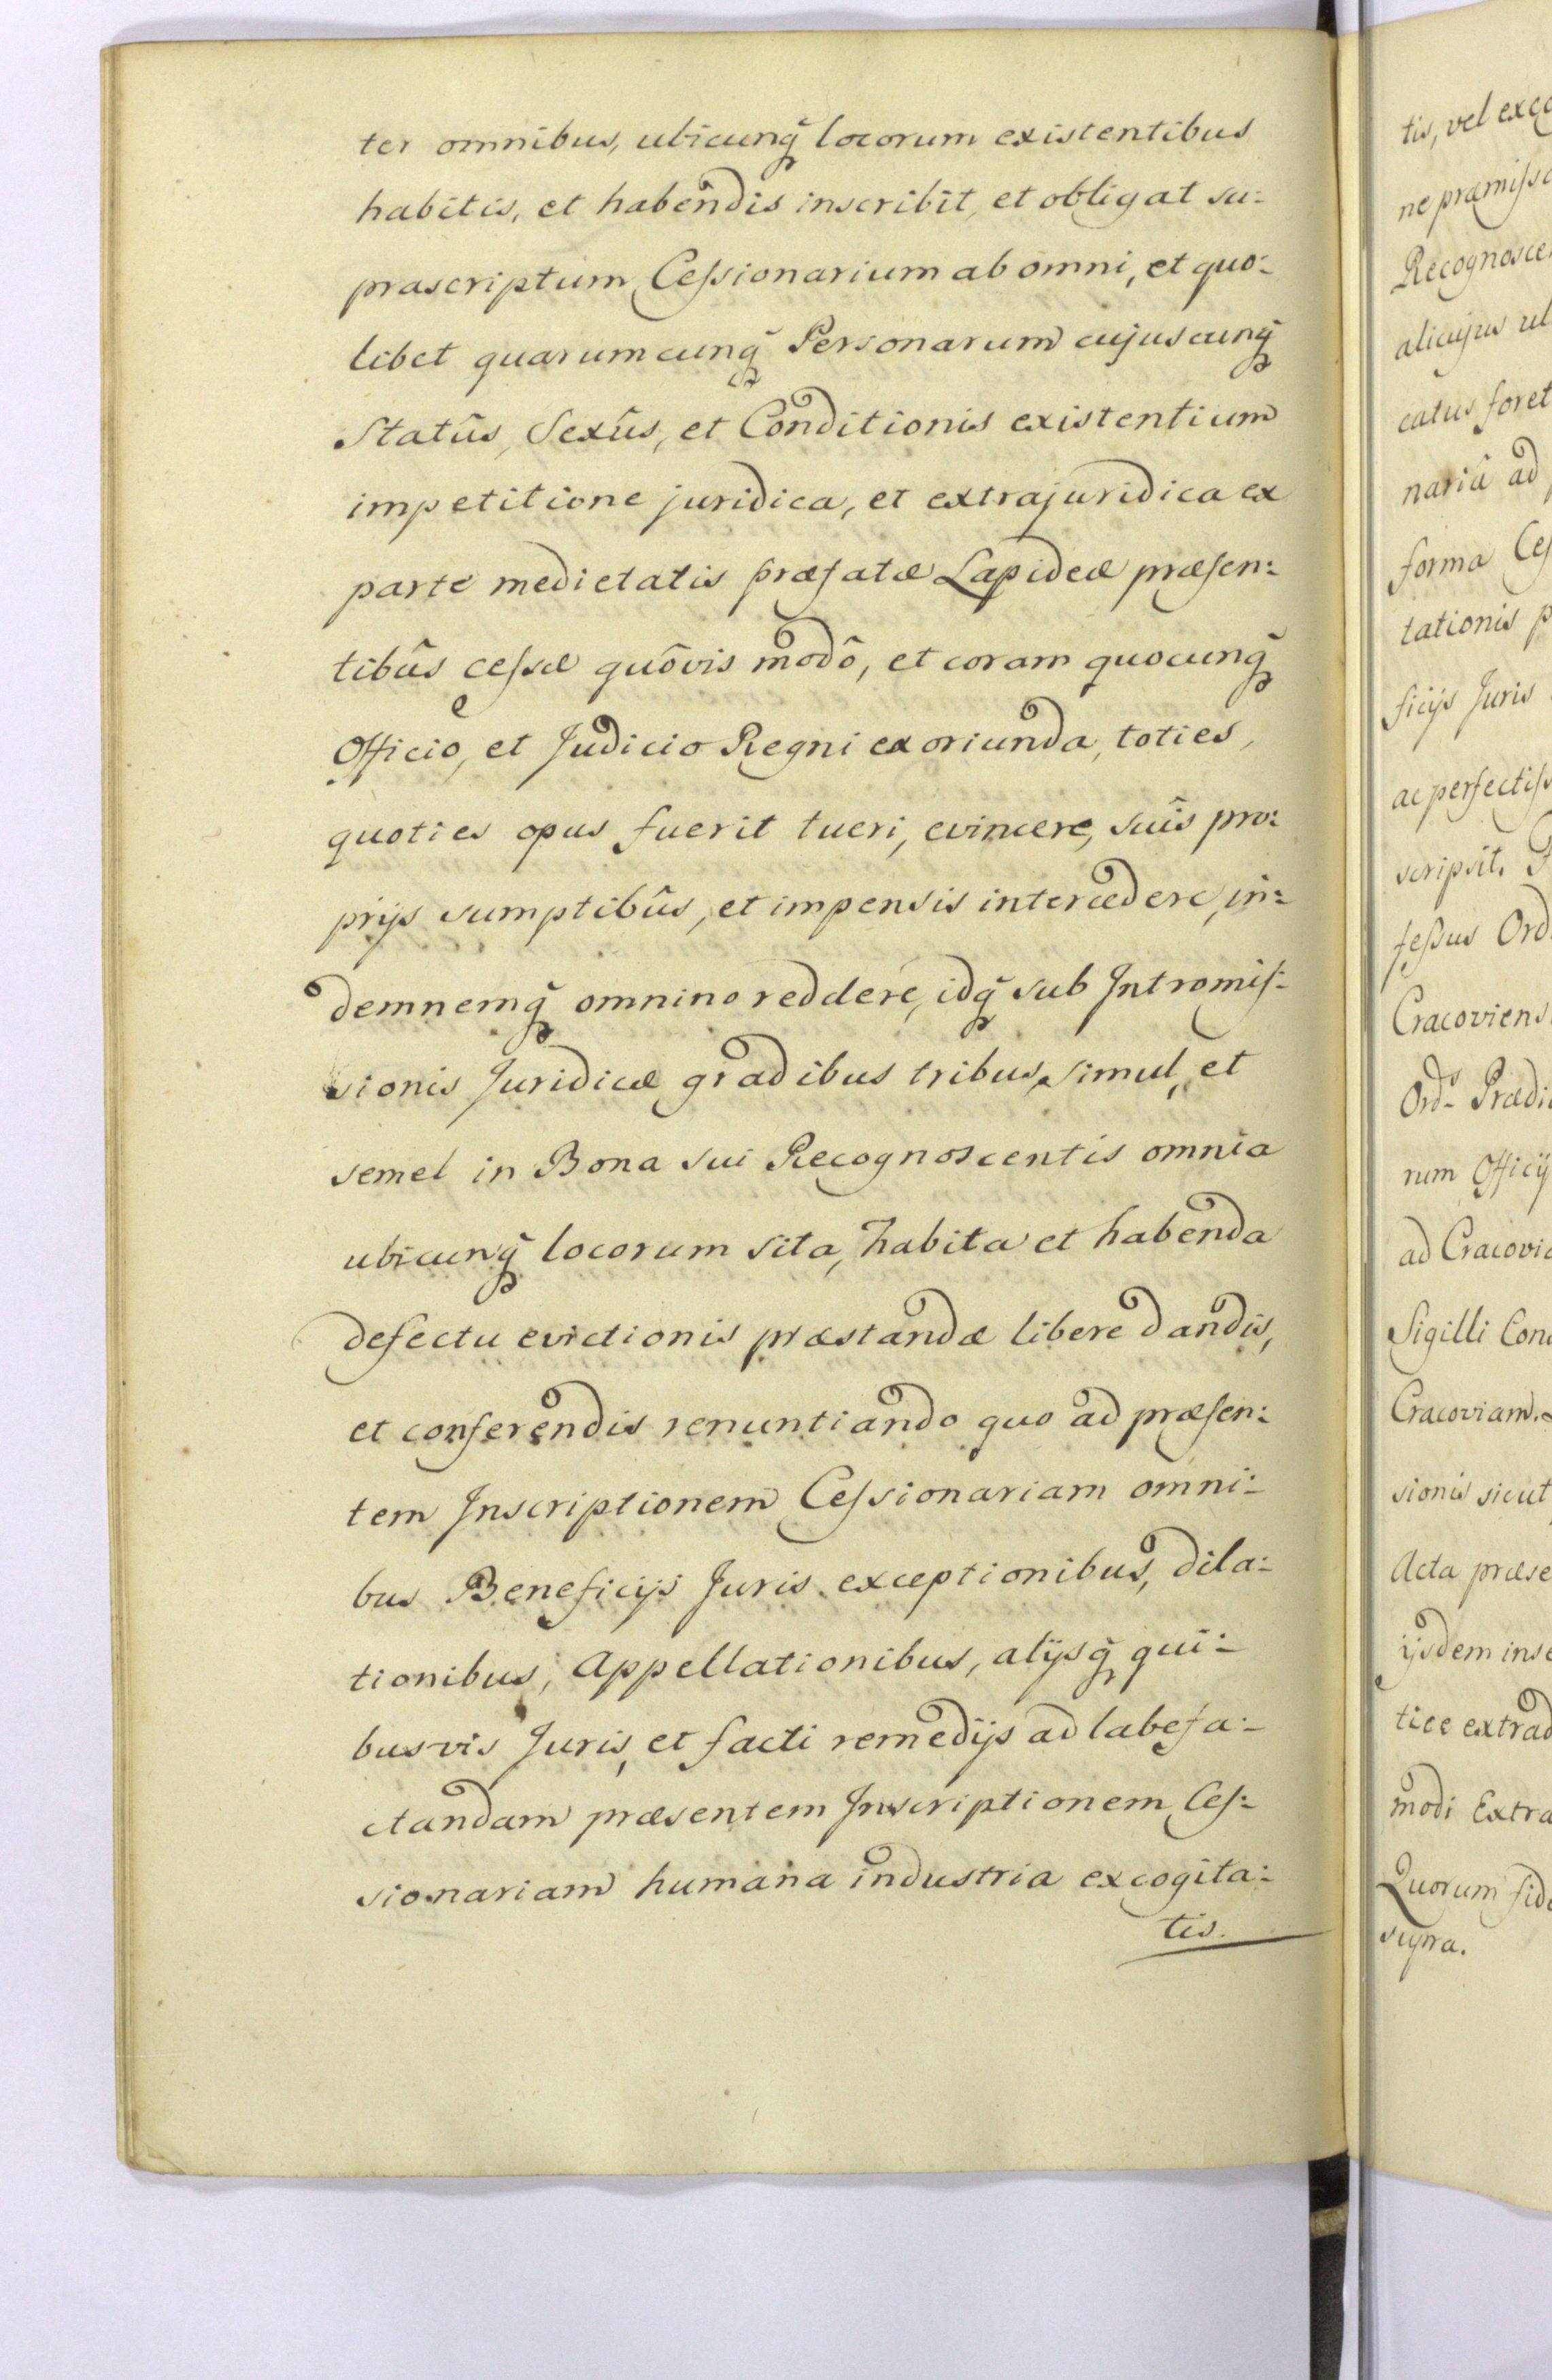 ter omnibus, ubicunq̃ locorum existentibus
habitis, et habendis inscribit, et obligat su:
prascriptum Ceſsionarium ab omni, et quo:
libet quarumcunq̃ Personarum cujuscunq̃
Statûs, Sexûs, et Conditionis existentium
impetitione juridica, et extrajuridica ex
parte medietatis præfatæ Lapideæ præsen:
tibûs ceſsæ quôvis modô, et coram quocunq̃
Officio, et Judicio Regni exoriunda, toties,
quoties opus fuerit tueri, evincere, suis pro:
prijs sumptibûs, et impensis intercedere, in:
demnemq̃ omnino reddere, idq̃ sub Intromiſ:
sionis Juridicæ gradibus tribus, simul, et
semel in Bona sui Recognoscentis omnia
ubicunq̃ locorum sita, habita et habenda
defectu evictionis præstandæ libere dandis,
et conferendis renuntiando quo ad præsen:
tem Inscriptionem Ceſsionariam omni:
bus Beneficijs Juris exceptionibus, dila:
tionibus, Appellationibus, alijsq̃ qui:
busvis Juris, et facti remedijs ad labefa:
ctandam præsentem Inscriptionem Ceſ:
sionariam humana industria excogita:
tis.
tis, vel exco
ne præmiſsa
Recognosce
alicujus ul
catus foret
nariâ ad
forma Ceſ
tationis p
ficijs Juris
ac perfectiſs
scripsit.
feſsus Ord
Cracoviens
Ord.s Prædi
rum Officij
ad Cracovia
Sigilli Con
Cracoviam.
sionis sicut
Acta præse
ijsdem inse
tice extrad
modi Extra
Quorum fide
supra.